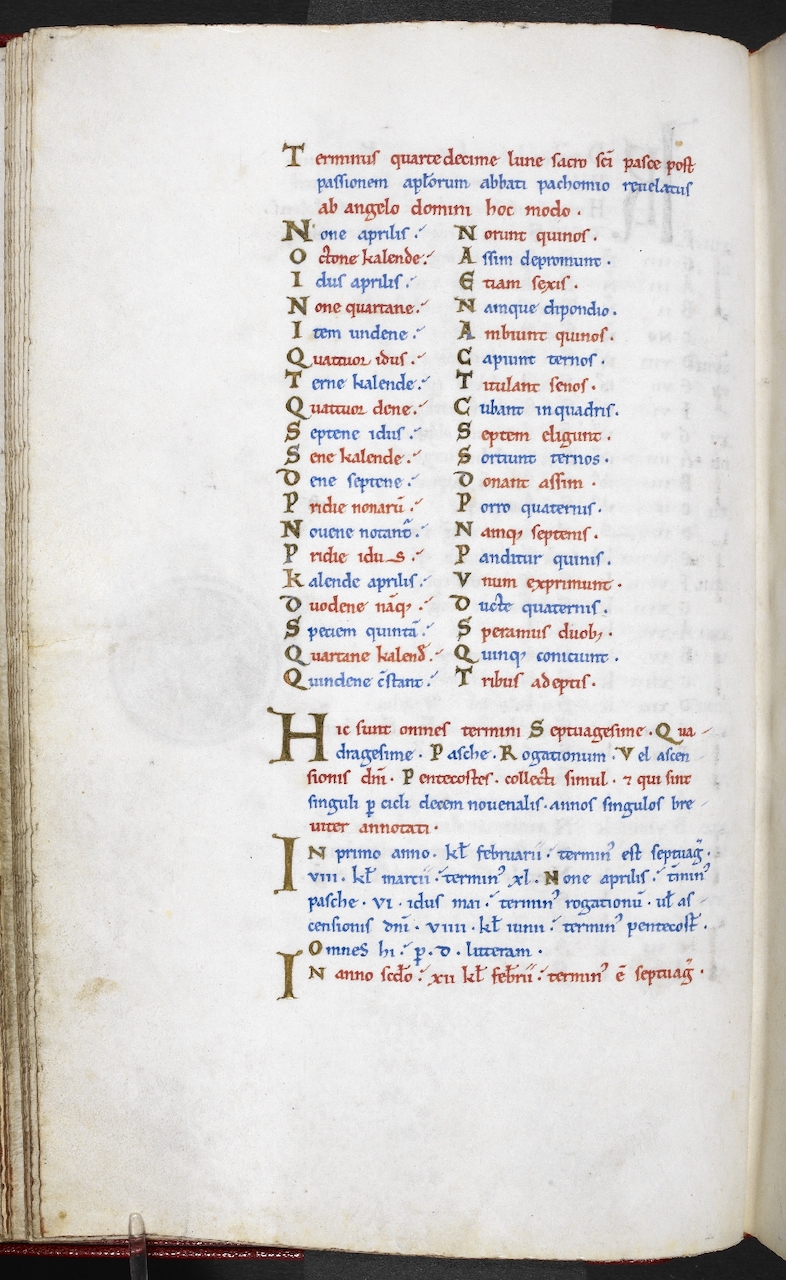 Terminus quartedecime lune sacro sc̄i pasce post
passionem apl̄orum abbati pachomio reuelatus
ab angelo domini hoc modo.
None aprilis. Norunt quinos.
Octone kalende. Assim depromunt.
Idus aprilis. Etiam sexis.
None quartane. Namque dipondio.
Item undene. Ambiunt quinos.
Quattuor idus. Capiunt ternos.
Terne kalende. Titulant senos.
Quattuor dene. Cubant in quadris.
Septene idus. Septem eligunt.
Sene kalende. Sortiunt ternos.
Dene septene. Donant assim.
Pridie nonarū. Porro quaternis.
Nouene notant̄. Namq; septenis.
Pridie idus. Panditur quinis.
Kalende aprilis. Vnum exprimunt.
Duodene nāq;. Ducte quaternis.
Speciem quintā. Speramus duob;.
Quartane kalend̄. Quinq; coniciunt.
Quindene c̄stant. Tribus adeptis.
Hic sunt omnes termini Septuagesime. Qua-
dragesime. Pasche. Rogationum. Vel ascen-
sionis dn̄i. Pentecostes. collecti simul. ⁊ qui sint
singuli p̱ cicli decem nouenalis. annos singulos bre-
uiter annotati.
IN primo anno. kl̄ februarii. terminꝰ est septuaḡ.
viii. kl̄ marcii. terminꝰ xl. None aprilis. t̄minꝰ
pasche. vi. idus mai. terminꝰ rogationū. ul̄ as-
censionis dn̄i. viiii. kl̄ iunii. terminꝰ pentecost̄.
Omnes hi. p̱. d. litteram.
IN anno scd̄o. xii kl̄ feb̄rii. terminꝰ ē septuaḡ.